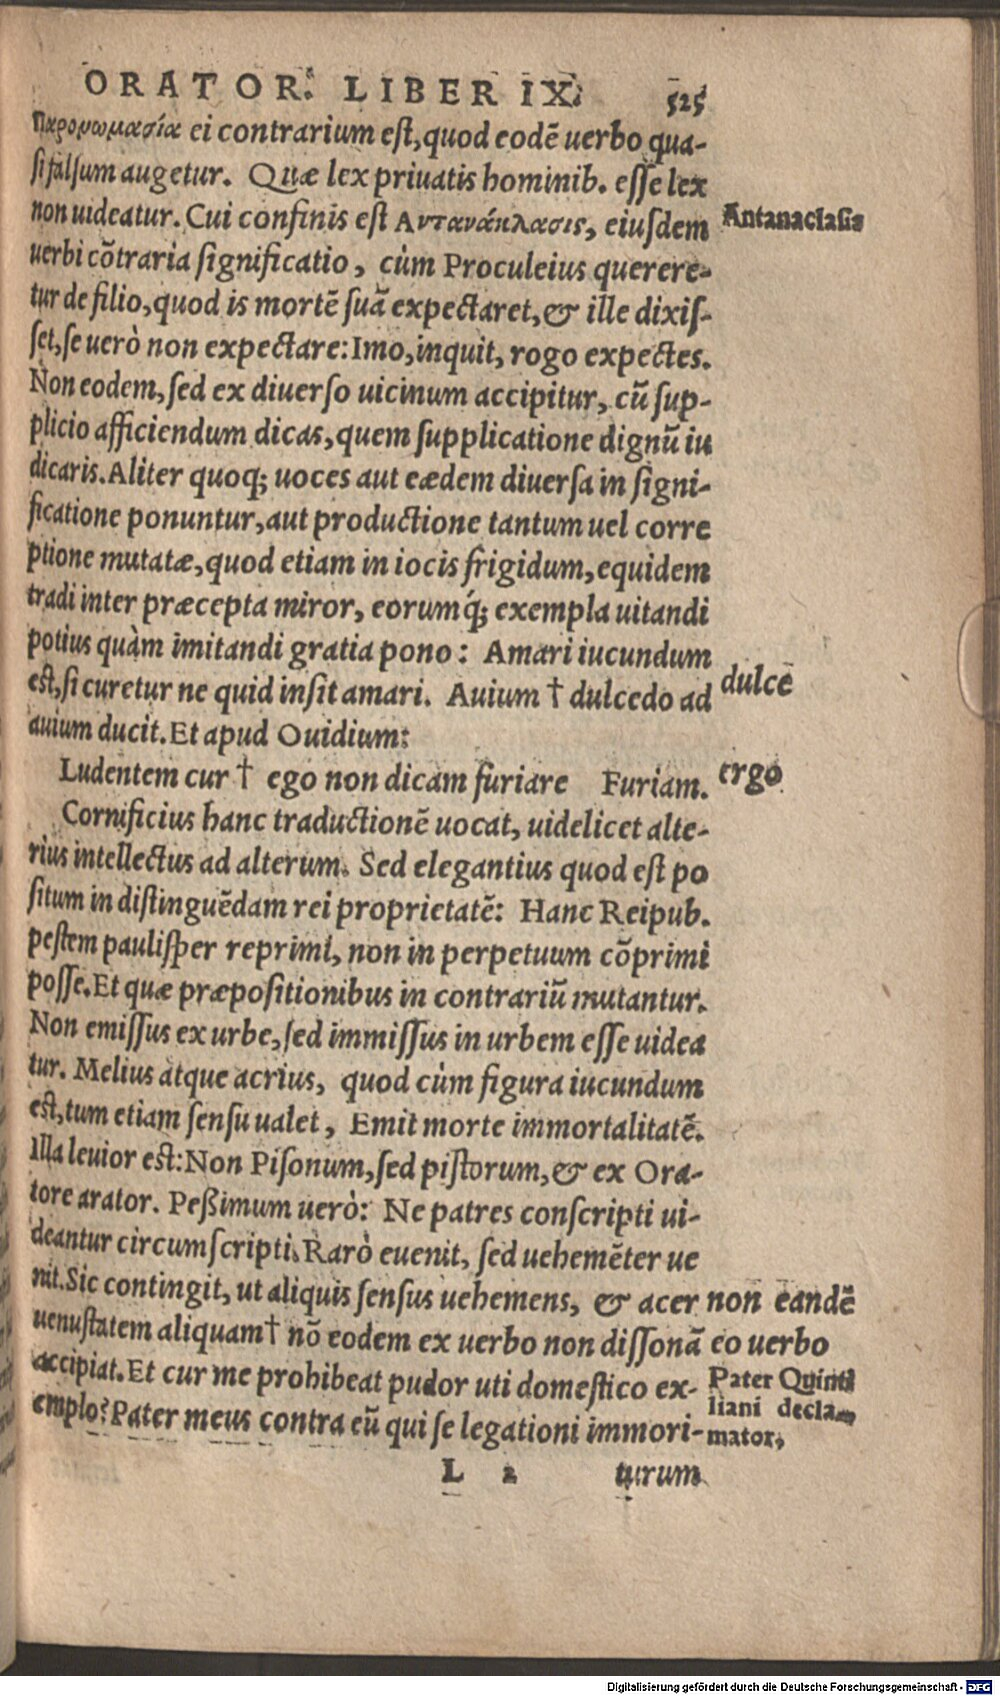 ORATOR. LIBER IX. 525
Παρονωμασία ei contrarium est, quod eodē uerbo qua-
si falsum augetur. Quæ lex priuatis hominib. esse lex
non uideatur. Cui confinis est Αντανάκλασις, eiusdem
Antanaclasis
uerbi cōtraria significatio, cùm Proculeius querere-
tur de filio, quod is mortē suā expectaret, & ille dixis-
set, se uerò non expectare: Imo, inquit, rogo expectes.
Non eodem, sed ex diuerso uicinum accipitur, cū sup-
plicio afficiendum dicas, quem supplicatione dignū iu
dicaris. Aliter quoq; uoces aut eædem diuersa in signi-
ficatione ponuntur, aut productione tantum uel corre
ptione mutatæ, quod etiam in iocis frigidum, equidem
tradi inter præcepta miror, eorumq́; exempla uitandi
potius quàm imitandi gratia pono: Amari iucundum
est, si curetur ne quid insit amari. Auium † dulcedo ad
dulcē
auium ducit. Et apud Ouidium:
Ludentem cur † ego non dicam furiare Furiam.
ergo
Cornificius hanc traductionē uocat, uidelicet alte-
rius intellectus ad alterum. Sed elegantius quod est po
situm in distinguēdam rei proprietatē: Hanc Reipub.
pestem paulisper reprimi, non in perpetuum cōprimi
posse. Et quæ præpositionibus in contrariū mutantur.
Non emissus ex urbe, sed immissus in urbem esse uidea
tur. Melius atque acrius, quod cùm figura iucundum
est, tum etiam sensu ualet, Emit morte immortalitatē.
Illa leuior est: Non Pisonum, sed pistorum, & ex Ora-
tore arator. Peßimum uerò: Ne patres conscripti ui-
deantur circumscripti. Rarò euenit, sed uehemēter ue
nit. Sic contingit, ut aliquis sensus uehemens, & acer
non eandē
uenustatem aliquam † nō eodem ex uerbo non dissonā
eo uerbo
accipiat. Et cur me prohibeat pudor uti domestico ex-
Pater Quinti
liani decla-
mator,
emplo? Pater meus contra eū qui se legationi immori-
L 2 turum
Digitalisierung gefördert durch die Deutsche Forschungsgemeinschaft - DFG